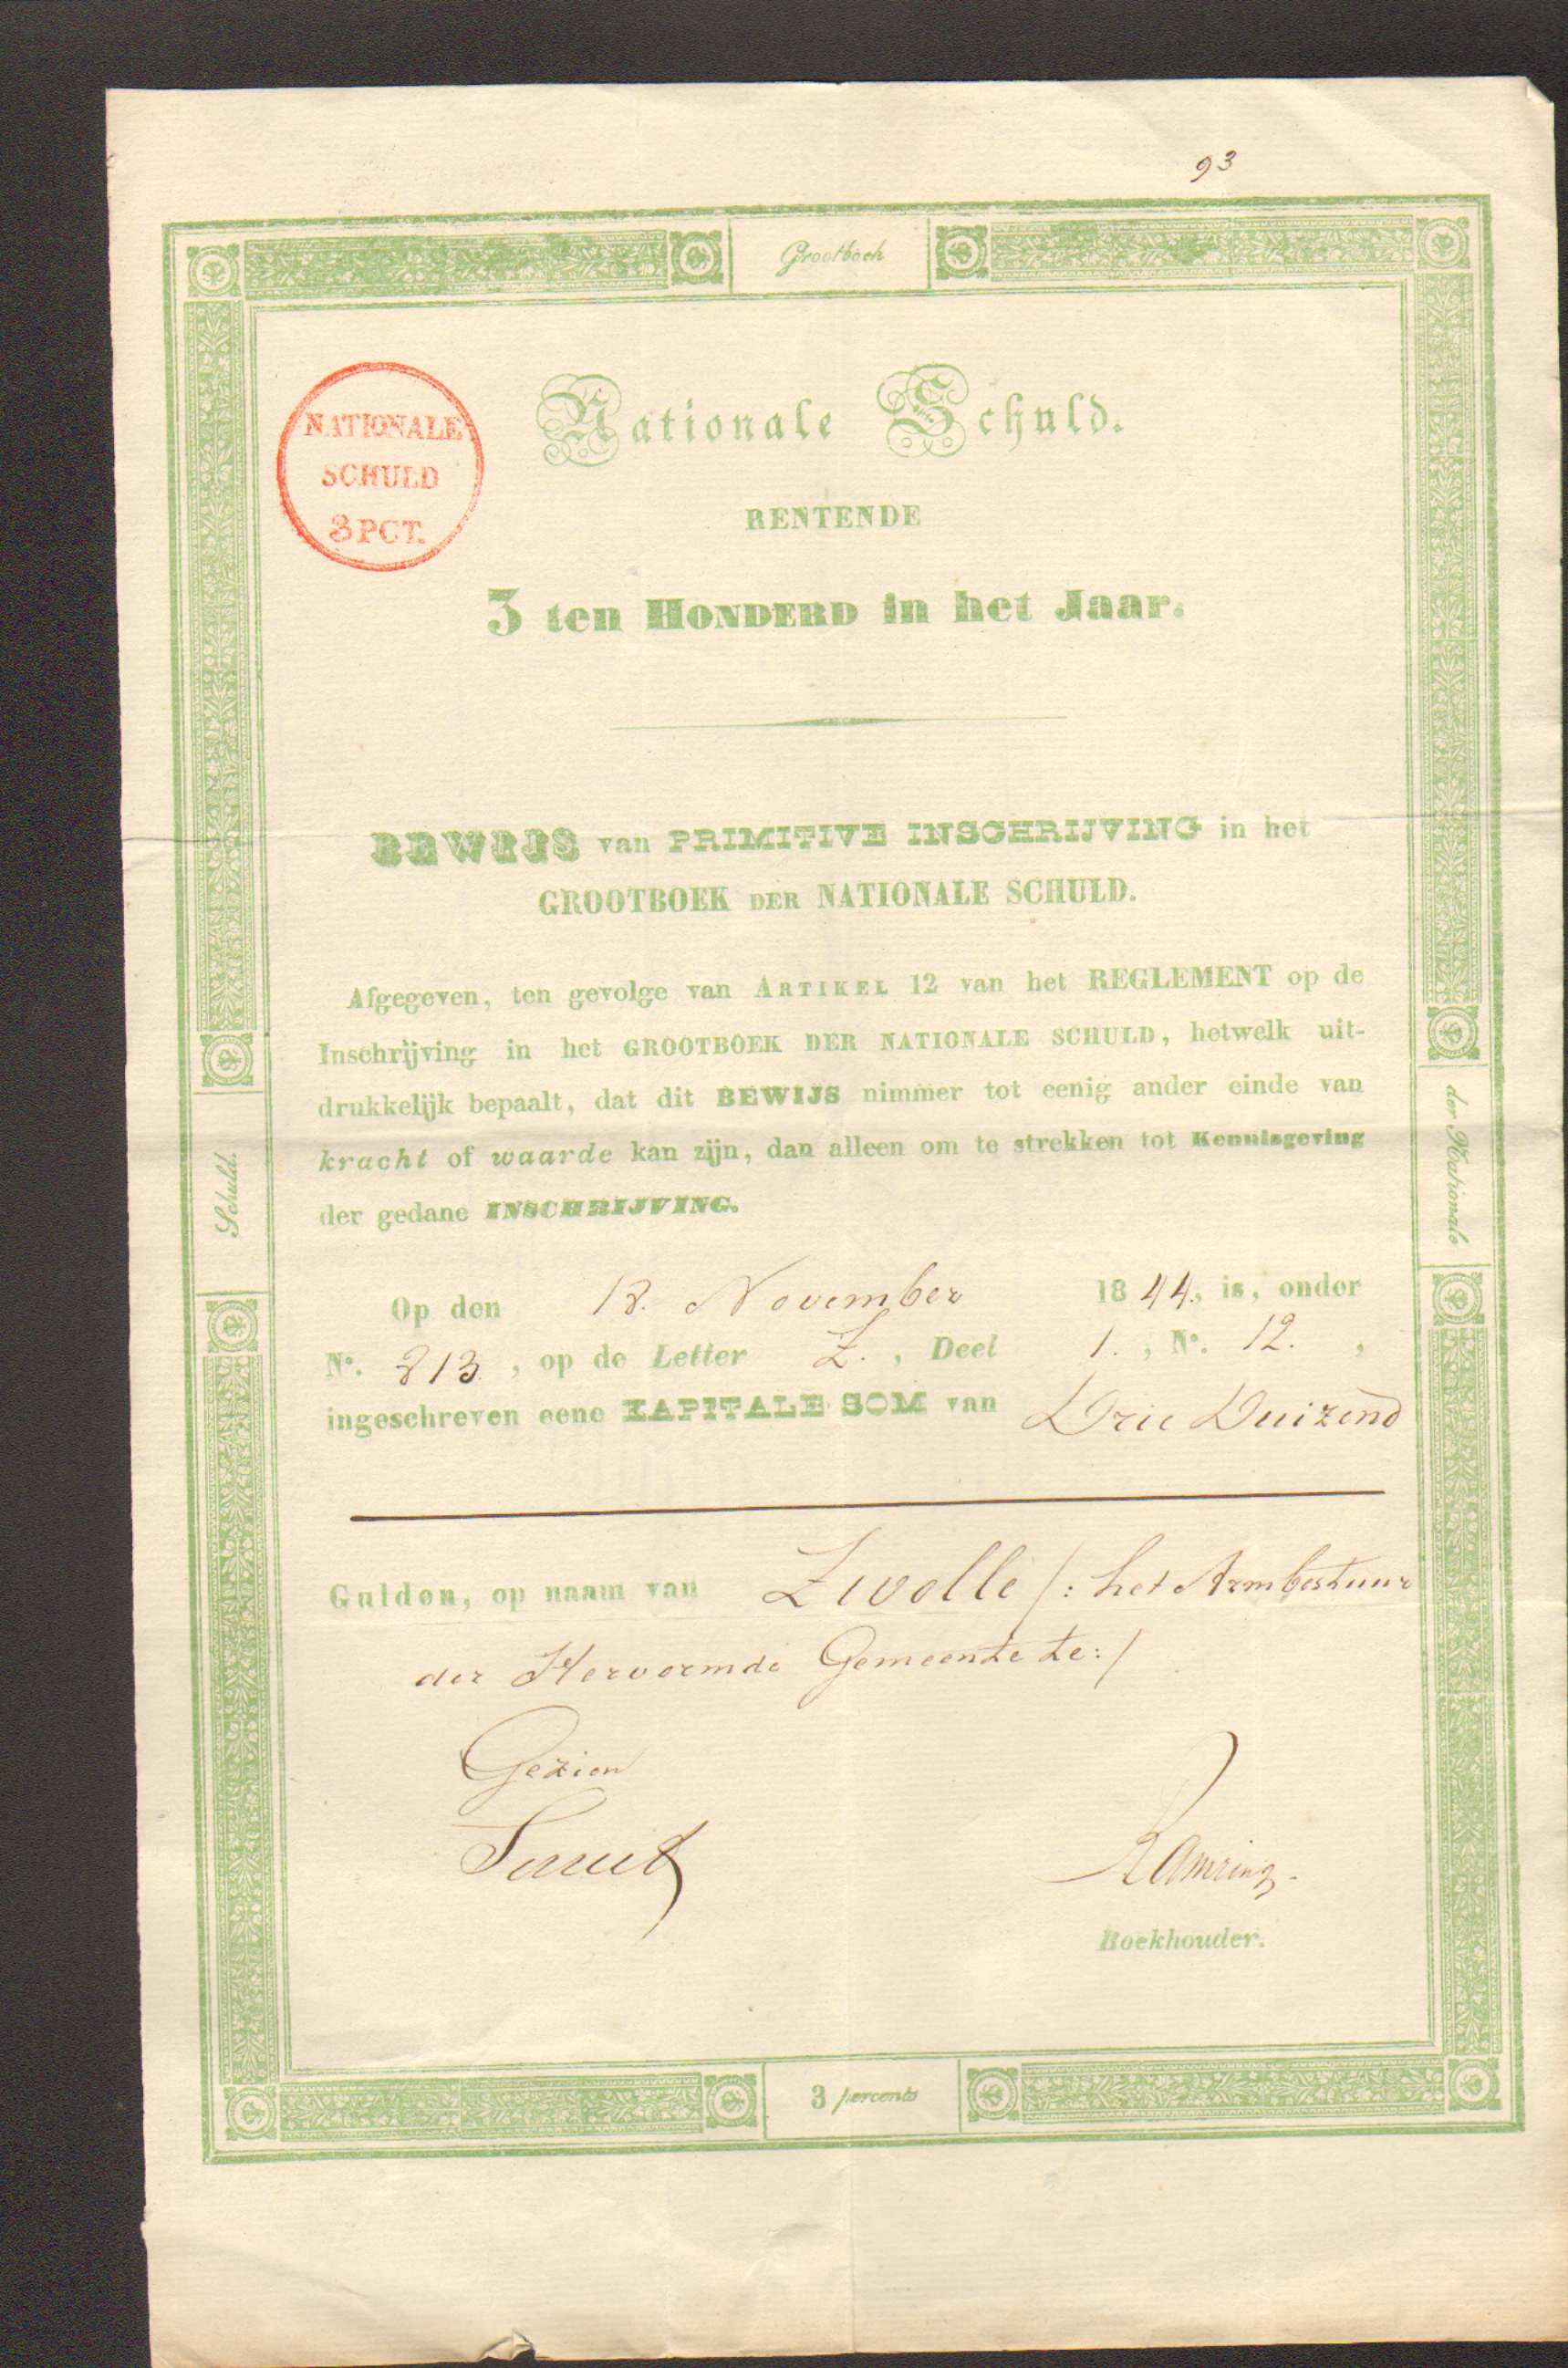 93
Grootboek
NATIONALE
SCHULD
3 PCT.
Nationale Schuld.
RENTENDE
3 ten HONDERD in het Jaar.
BEWIJS van PRIMITIVE INSCHRIJVING in het
GROOTBOEK DER NATIONALE SCHULD.
Afgegeven, ten gevolge van ARTIKEL 12 van het REGLEMENT op de
Inschrijving in het GROOTBOEK DER NATIONALE SCHULD, hetwelk uit-
drukkelijk bepaalt, dat dit BEWIJS nimmer tot eenig ander einde van
kracht of waarde kan zijn, dan alleen om te strekken tot Kennisgeving
der gedane INSCHRIJVING.
Op den 18. November 1844., is, onder
No. 813., op de Letter Z., Deel 1., No. 12.,
ingeschreven eene KAPITALE SOM van Drie Duizend
Gulden, op naam van Zwolle /: het Armbestuur
der Hervormde Gemeente te :/
Gezien
Ramring.
Boekhouder.
der Nationale
Schuld.
3 percents